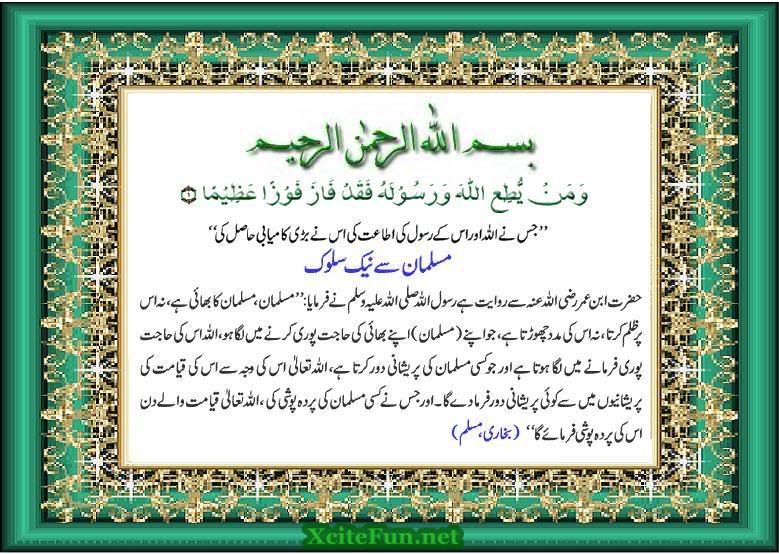 بسم الله الرحمٰن الرحيم
وَمَنْ يُّطِعِ اللّٰهَ وَرَسُوْلَهٗ فَقَدْ فَازَ فَوْزًا عَظِيْمًا
’’جس نے اللہ اور اس کے رسول کی اطاعت کی اس نے بڑی کامیابی حاصل کی‘‘
مسلمان سے نیک سلوک
حضرت ابن عمر رضی اللہ عنہ سے روایت ہے رسول اللہ صلی اللہ علیہ وسلم نے فرمایا: ’’مسلمان، مسلمان کا بھائی ہے، نہ اس
پر ظلم کرتا، نہ اس کی مدد چھوڑتا ہے، جو اپنے (مسلمان) اپنے بھائی کی حاجت پوری کرنے میں لگا ہو، اللہ اس کی حاجت
پوری فرمانے میں لگا ہوتا ہے اور جو کسی مسلمان کی پریشانی دور کرتا ہے، اللہ تعالیٰ اس کی وجہ سے اس کی قیامت کی
پریشانیوں میں سے کوئی پریشانی دور فرما دے گا۔ اور جس نے کسی مسلمان کی پردہ پوشی کی، اللہ تعالیٰ قیامت والے دن
اس کی پردہ پوشی فرمائے گا‘‘ (بخاری، مسلم)
XciteFun.net